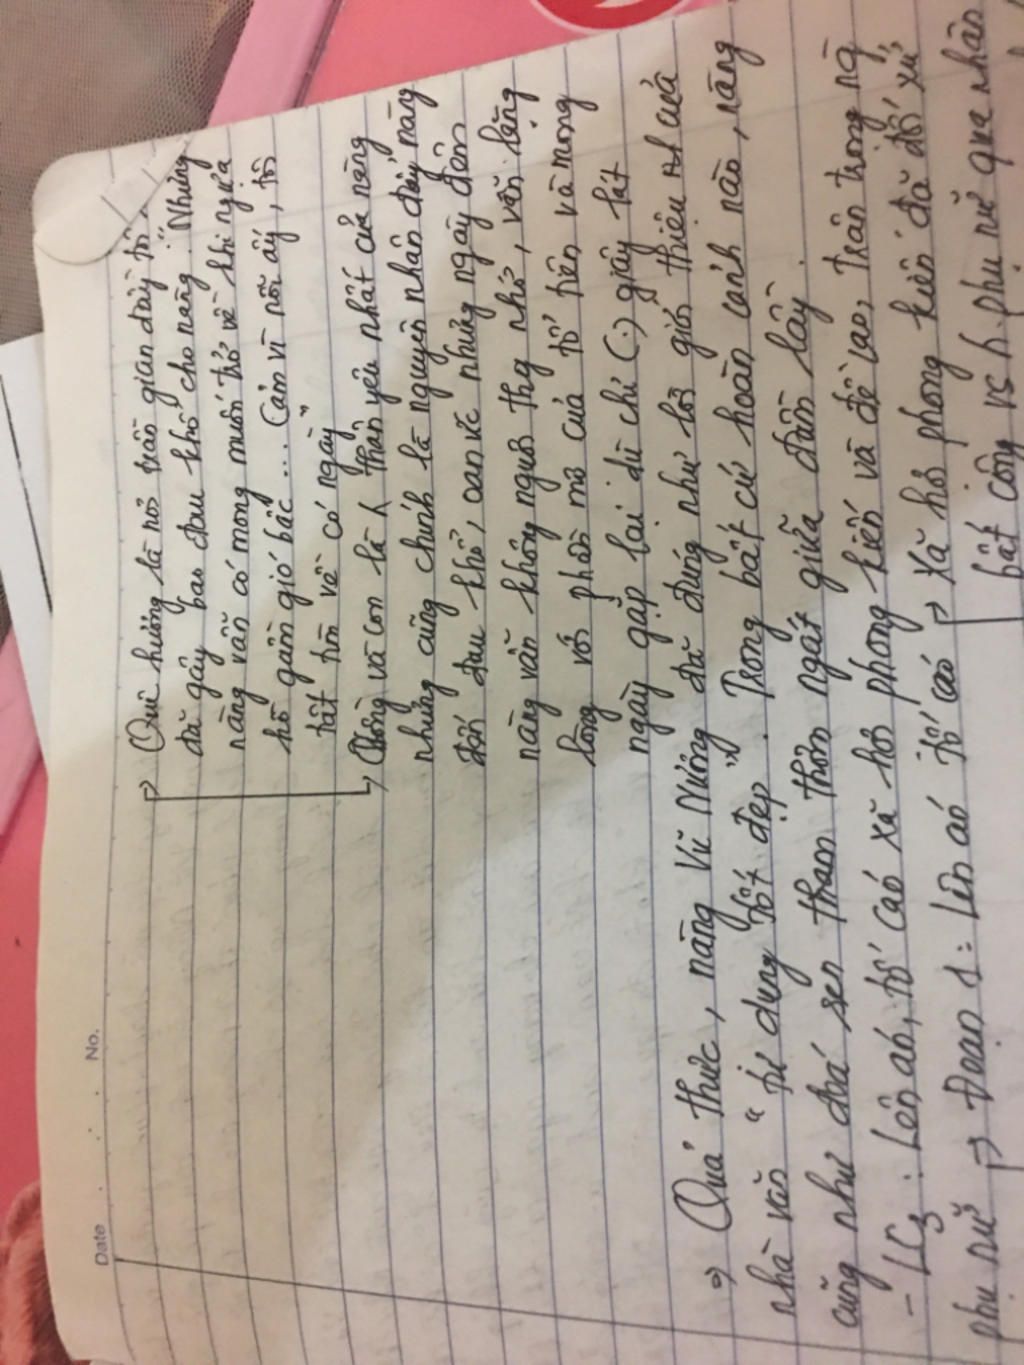 Date No.
→ Quê hương là nơi trần gian đầy tồi
đã gây bao đau khổ cho nàng. "Nhưng
nàng vẫn có mong muốn trở về khi ngựa
hồ gầm gió bấc ... Cảm vì nỗi ấy, tôi
tất tìm về có ngày"
→ Chồng và con là thân yêu nhất của nàng
nhưng cũng chính là nguyên nhân đẩy nàng
đến đau khổ, oan ức nhưng ngày đêm
nàng vẫn không nguôi thg nhớ, vẫn lo lắng
lòng với phần mộ của tổ tiên và mong
ngày gặp lại dù chỉ (.) giây lát
⇒ Quả thực, nàng Vũ Nương đã đúng như lời giới thiệu của
nhà văn "tư dung tốt đẹp". Trong bất cứ hoàn cảnh nào, nàng
cũng như đoá sen thơm ngát giữa đầm lầy.
- LĐ3: Lên án, tố cáo xã hội phong kiến và đề cao, trân trọng ng
phụ nữ → Đoạn 1: Lên án tố cáo → Xã hội phong kiến đã đối xử
bất công vs ng phụ nữ qua nhân